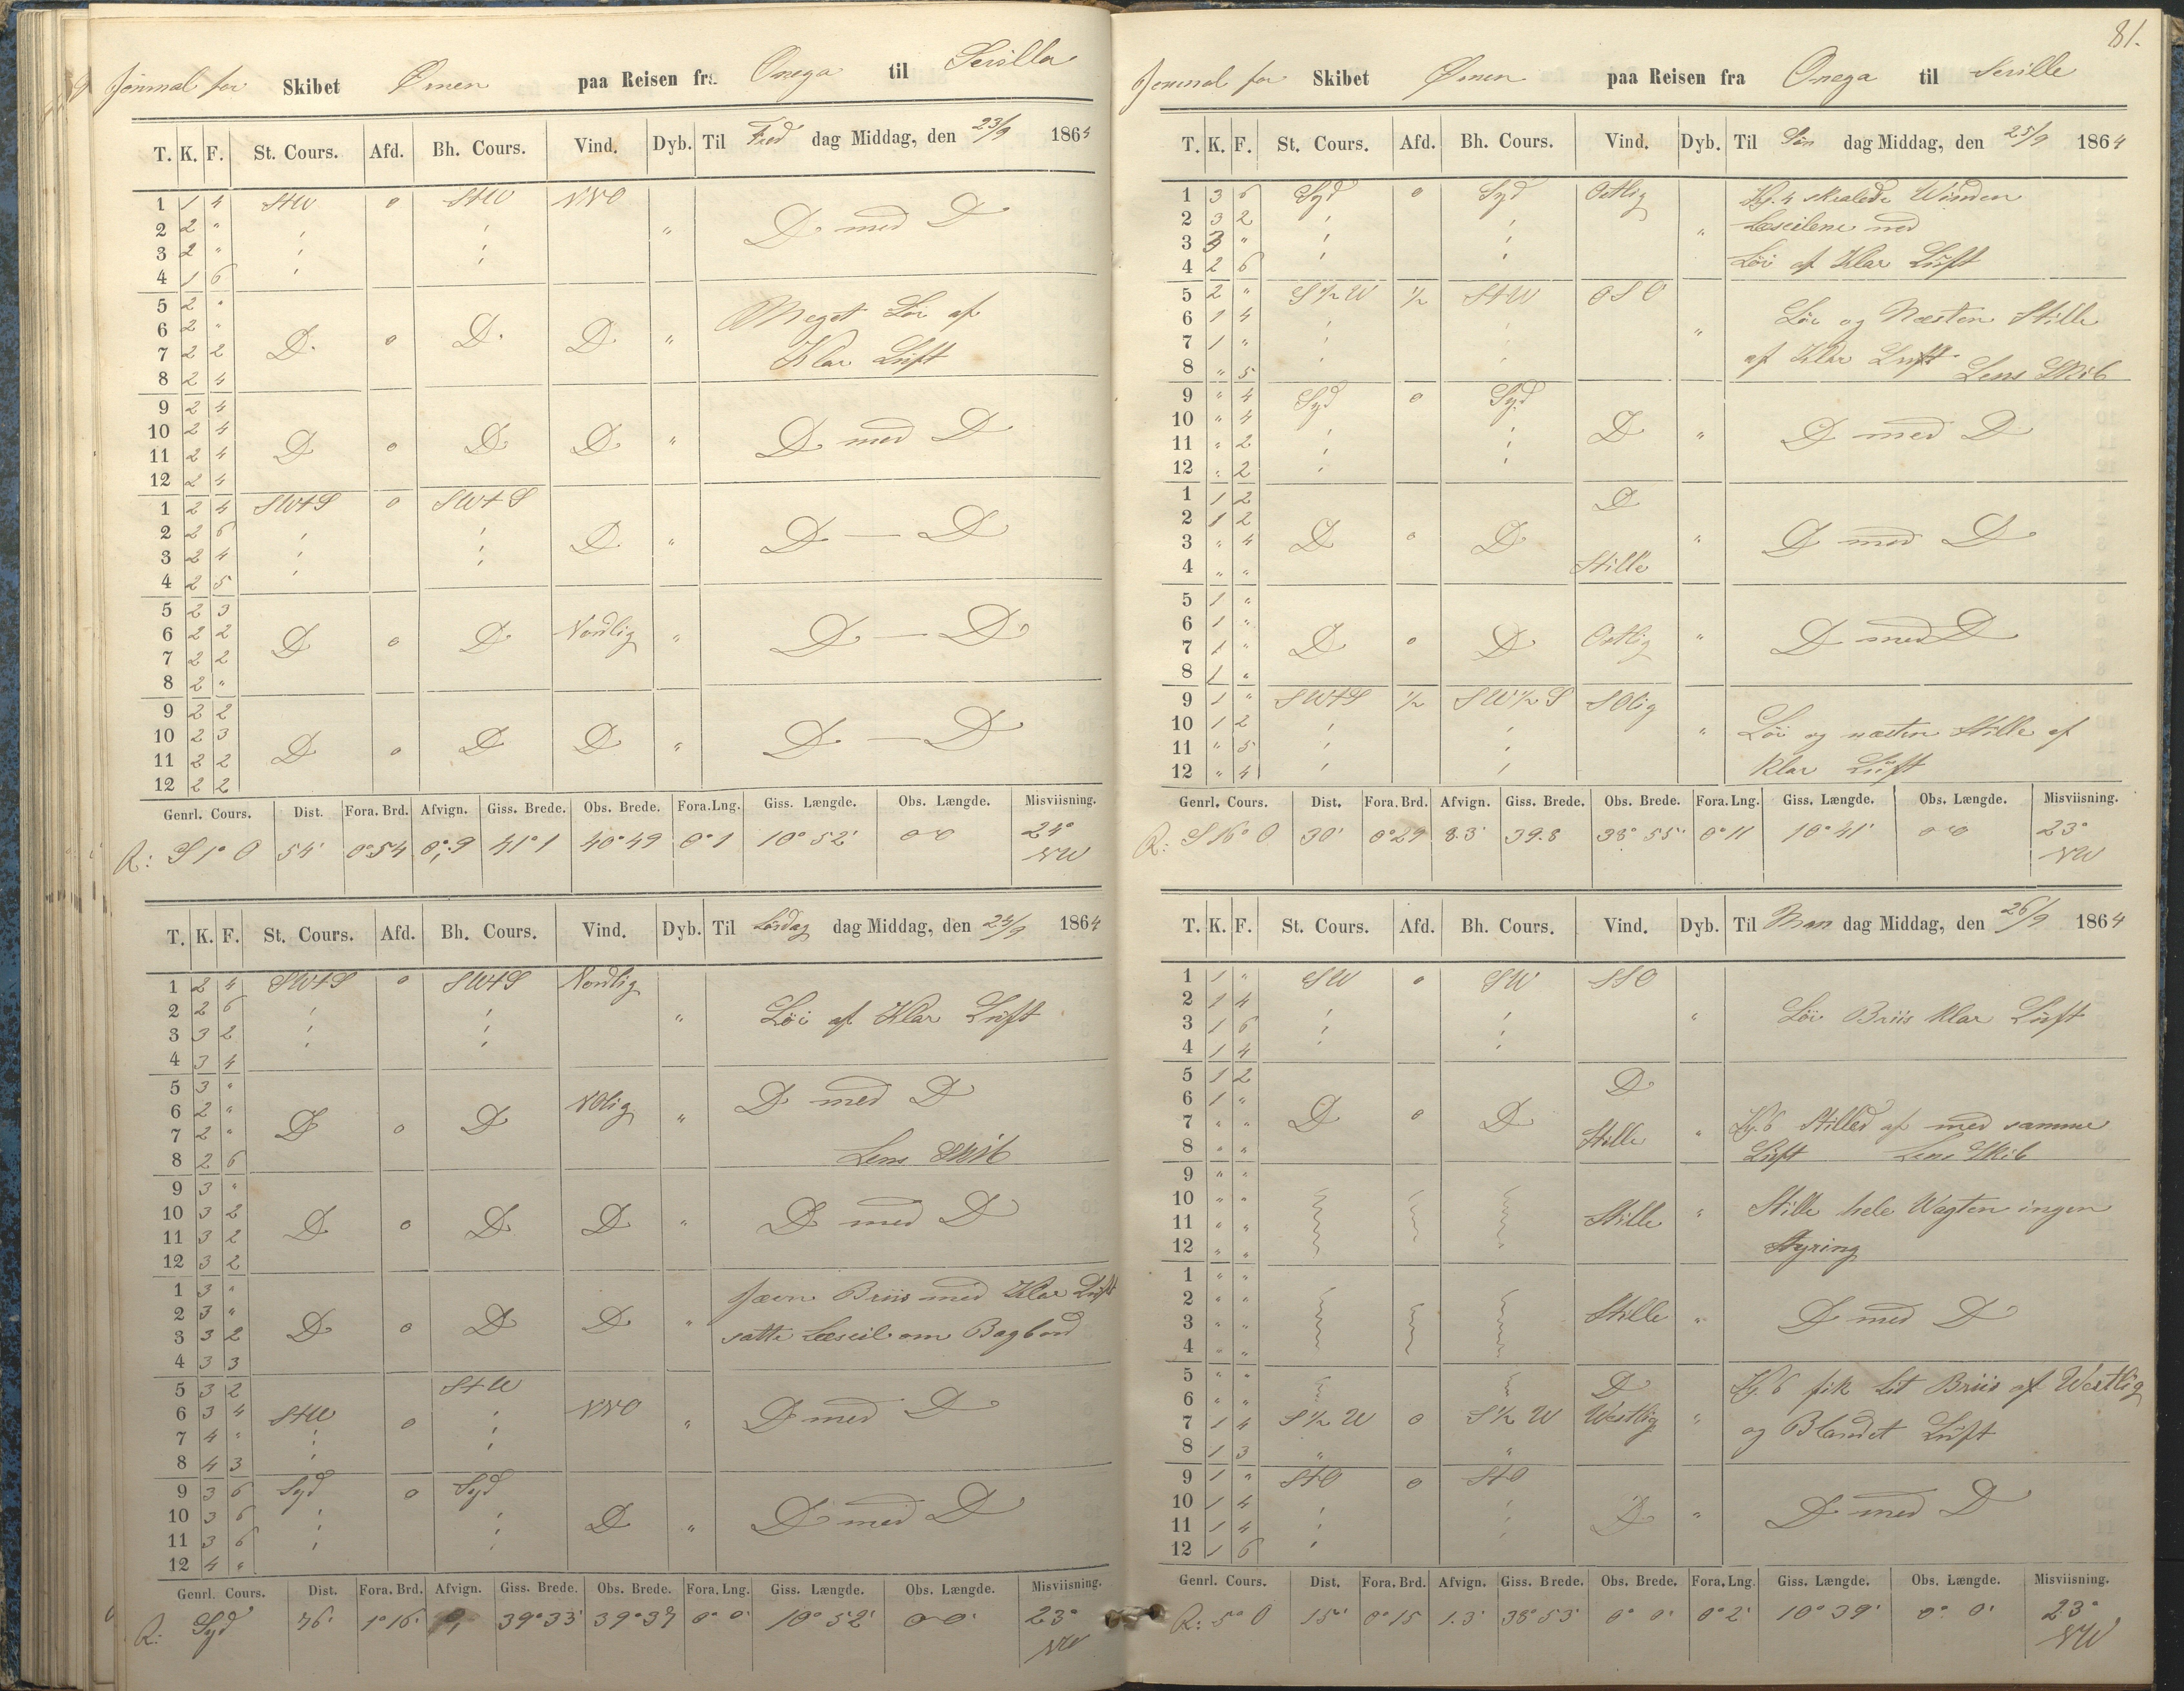 Journal for Skibet Ørnen paa Reisen fra Onega til Sevilla
T. K. F. St. Cours. Afd. Bh. Cours. Vind. Dyb. Til Fre dag Middag, den 23/9 1864
1 1 4 StW 0 StW NNO
2 2 " ' ' " D med D
3 2 " ' '
4 1 6 ' '
5 2 " Meget Löi af
6 2 " D. 0 D. D "
7 2 2 Klar Luft
8 2 4
9 2 4
10 2 4 D 0 D D " D med D
11 2 4
12 2 4
1 2 4 SWtS 0 SWtS
2 2 6 ' ' D " D — D
3 2 4 ' '
4 2 5 ' '
5 2 3
6 2 2 D 0 D Nordlig " D — D
7 2 2
8 2 "
9 2 2
10 2 3 D 0 D D " D — D
11 2 2
12 2 2
Genrl. Cours. Dist. Fora. Brd. Afvign. Giss. Brede. Obs. Brede. Fora. Lng. Giss. Længde. Obs. Længde. Misviisning.
R: S 1° O 54' 0°54 0°,9 41°1 40°49 0°1 10° 52' 0 0 24° NW
T. K. F. St. Cours. Afd. Bh. Cours. Vind. Dyb. Til Lördag dag Middag, den 24/9 1864
1 2 4 SWtS 0 SWtS Nordlig
2 2 6 ' ' " Löi af Klar Luft
3 3 2 ' '
4 3 4 ' '
5 3 " D med D
6 2 " D 0 D NOlig "
7 2 "
8 2 6 Lens Skib
9 3 "
10 3 2 D 0 D D " D med D
11 3 2
12 3 2
1 3 " Jævn Briis med Klar Luft
2 3 " D 0 D D "
3 3 2 satte Læseil om Bagbord
4 3 3
5 3 2 StW
6 3 4 StW 0 ' NNO " D med D
7 4 " ' '
8 4 3 ' '
9 3 6 Syd 0 Syd
10 3 6 ' ' D " D med D
11 3 6 ' '
12 4 " '
Genrl. Cours. Dist. Fora. Brd. Afvign. Giss. Brede. Obs. Brede. Fora. Lng. Giss. Længde. Obs. Længde. Misviisning.
R: Syd 76' 1°16' 39°33' 39°37 0° 0' 10° 52' 0 0' 23° NW
81.
Journal for Skibet Ørnen paa Reisen fra Onega til Seville
T. K. F. St. Cours. Afd. Bh. Cours. Vind. Dyb. Til Sön dag Middag, den 25/9 1864
1 3 6 Syd 0 Syd Ostlig Kl. 4 skralede Winden
2 3 2 ' ' " Læseilene ned
3 3 " ' '
4 2 6 ' ' Löi af Klar Luft
5 2 " S ½ W ½ StW OSO
6 1 4 ' ' " Löi og Næsten Stille
7 1 " ' '
8 " 5 ' ' af Klar Luft Lens Skib
9 " 4 Syd 0 Syd
10 " 4 ' ' D " D med D
11 " 2 ' '
12 " 2 ' '
1 1 2 D
2 1 2
3 " 4 D 0 D " D med D
4 " " Stille
5 1 "
6 1 " D 0 D Ostlig " D med D
7 1 "
8 1 "
9 1 " SWtS ½ SW½S SOlig
10 1 2 ' ' " Löi og næsten Stille af
11 " 5 ' '
12 " 4 ' ' Klar Luft
Genrl. Cours. Dist. Fora. Brd. Afvign. Giss. Brede. Obs. Brede. Fora. Lng. Giss. Længde. Obs. Længde. Misviisning.
R: S 16° O 30' 0°29 8.3' 39.8 38° 55' 0°11 10° 41' 0 0 23° NW
T. K. F. St. Cours. Afd. Bh. Cours. Vind. Dyb. Til Man dag Middag, den 26/9 1864
1 1 " SW 0 SW SSO
2 1 4 ' ' " Löi Briis Klar Luft
3 1 6 ' '
4 1 4 ' '
5 1 2 D
6 1 " D 0 D
7 " " Stille " Kl. 6 Stilled af med samme
8 " " Luft Lens Skib
9 " "
10 " " Stille " Stille hele Wagten ingen
11 " "
12 " " Styring
1 " "
2 " " Stille " D med D
3 " "
4 " "
5 " " D Kl. 6 fik lit Briis af Westlig
6 " "
7 1 4 S ½ W 0 S ½ W Westlig " og Blandet Luft
8 1 3 " "
9 1 " StO 0 StO
10 1 4 ' ' D " D med D
11 1 4 ' '
12 1 6 '
Genrl. Cours. Dist. Fora. Brd. Afvign. Giss. Brede. Obs. Brede. Fora. Lng. Giss. Længde. Obs. Længde. Misviisning.
R: 5° O 15' 0°15 1.3' 38°53' 0° 0' 0°2' 10° 39' 0° 0' 23° NW